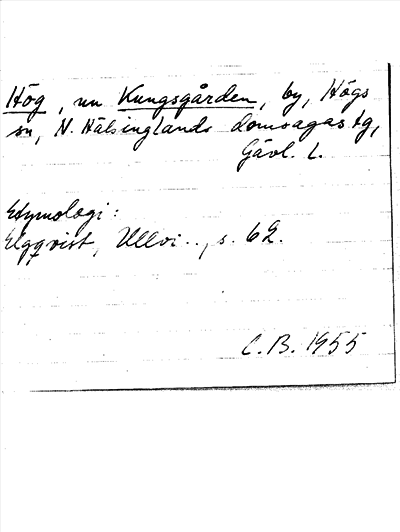 Hög, nu Kungsgården, by, Högs
sn, N. Hälsinglands domsagas tg,
Gävl. l.
Etymologi:
Elgqvist, Ullvi.., s. 62.
C.B. 1955